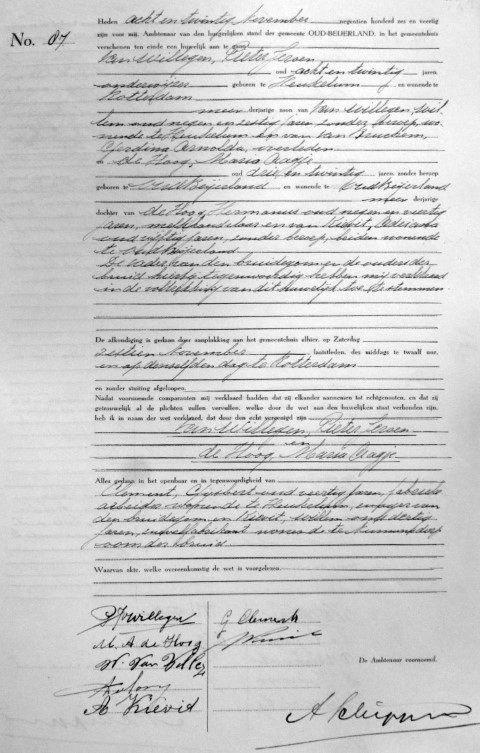 No. 67
Heden acht en twintig november negentien honderd zes en veertig
zijn voor mij, Ambtenaar van den burgerlijken stand der gemeente OUD-BEIJERLAND, in het gemeentehuis
verschenen ten einde een huwelijk aan te gaan
Van Willegen, Pieter Jeroen,
oud acht en twintig jaren,
onderwijzer geboren te Heukelum en wonende te
Rotterdam
meerderjarige zoon van Van Willegen, Wil-
lem oud negen en zestig jaren, zonder beroep, wo-
nende te Heukelum en van Van Bruchem,
Gerdina Arnolda, overleden
en de Hoog, Maria Aagje
oud drie en twintig jaren, zonder beroep
geboren te Oud Beijerland en wonende te Oud Beijerland
meerderjarige
dochter van de Hoog, Hermanus oud negen en veertig
jaren, melkhandelaar en van Kievit, Adriana
oud vijftig jaren, zonder beroep, beiden wonende
te Oud Beijerland
De vader van den bruidegom en de ouders der
bruid hierbij tegenwoordig hebben mij verklaard
in de voltrekking van dit huwelijk toe te stemmen.
De afkondiging is gedaan door aanplakking aan het gemeentehuis alhier, op Zaterdag
zestien November laatstleden, des middags te twaalf uur,
en op denzelfden dag te Rotterdam
en zonder stuiting afgeloopen.
Nadat voornoemde comparanten mij verklaard hadden dat zij elkander aannemen tot echtgenooten, en dat zij
getrouwelijk al de plichten zullen vervullen, welke door de wet aan den huwelijken staat verbonden zijn,
heb ik in naam der wet verklaard, dat door den echt vereenigd zijn
Van Willegen, Pieter Jeroen
en
de Hoog, Maria Aagje
Alles gedaan in het openbaar en in tegenwoordigheid van
Clement, Gijsbert oud veertig jaren, fabrieks
arbeider wonende te Heukelum, zwager van
den bruidegom en Kievit, Willem oud dertig
jaren, wonende te
oom der bruid
Waarvan akte, welke overeenkomstig de wet is voorgelezen.
PJ v Willegen
M. A de Hoog
W. Van Willeg
A Kievit
G Clement
De Ambtenaar voornoemd,